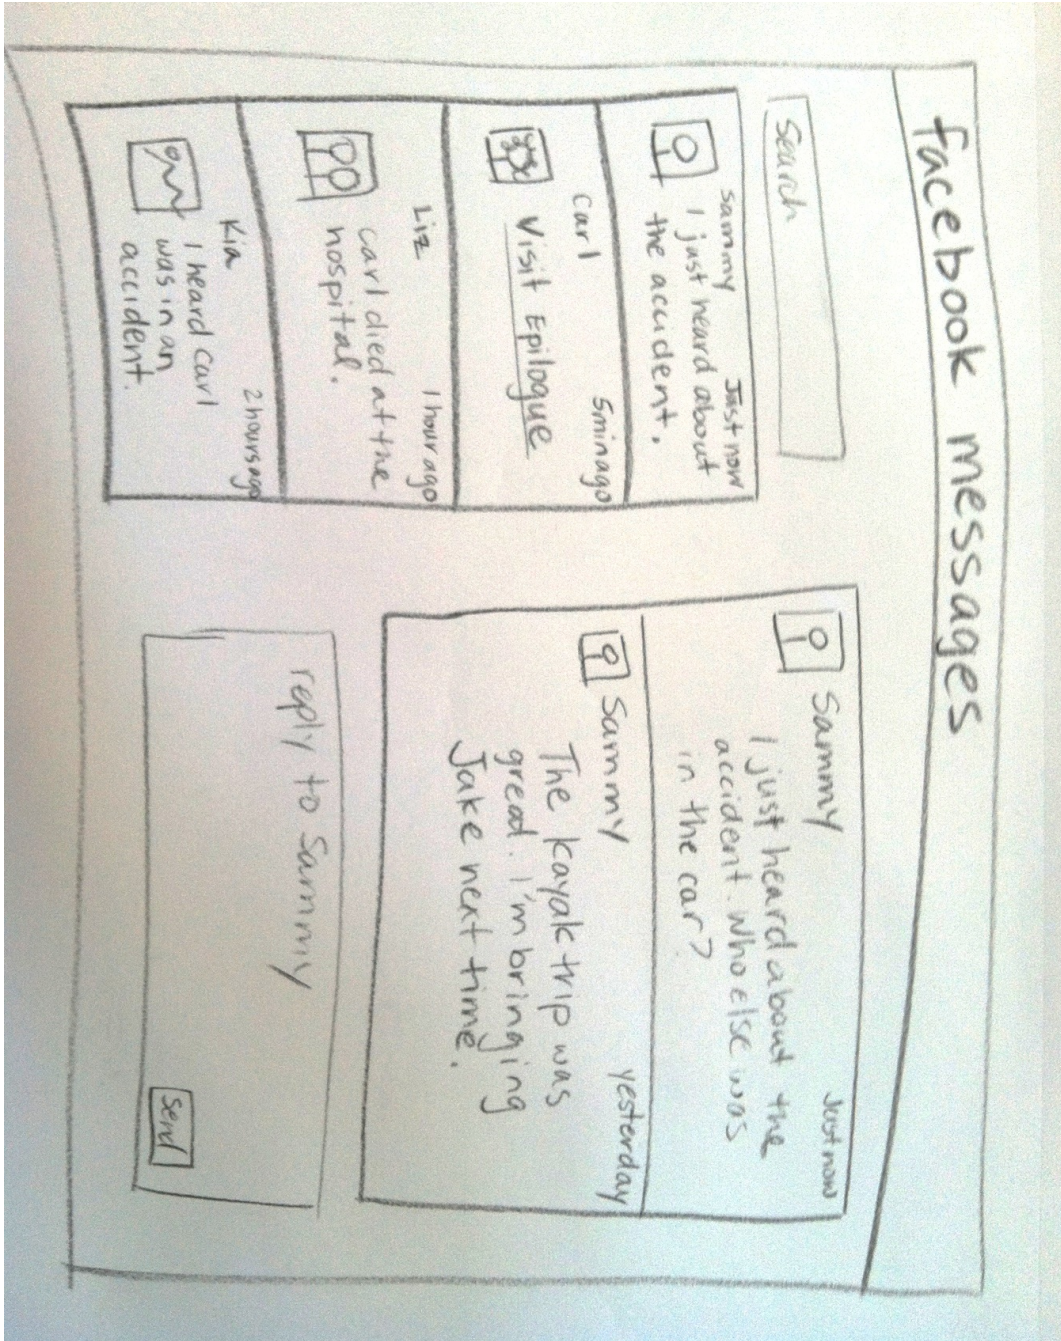 facebook messages
Search
Sammy Just now
I just heard about
the accident.
Carl 5 min ago
Visit Epilogue
Liz 1 hour ago
Carl died at the
hospital.
Kia 2 hours ago
I heard Carl
was in an
accident.
Sammy Just now
I just heard about the
accident. Who else was
in the car?
Sammy yesterday
The kayak trip was
great. I'm bringing
Jake next time.
reply to Sammy
Send